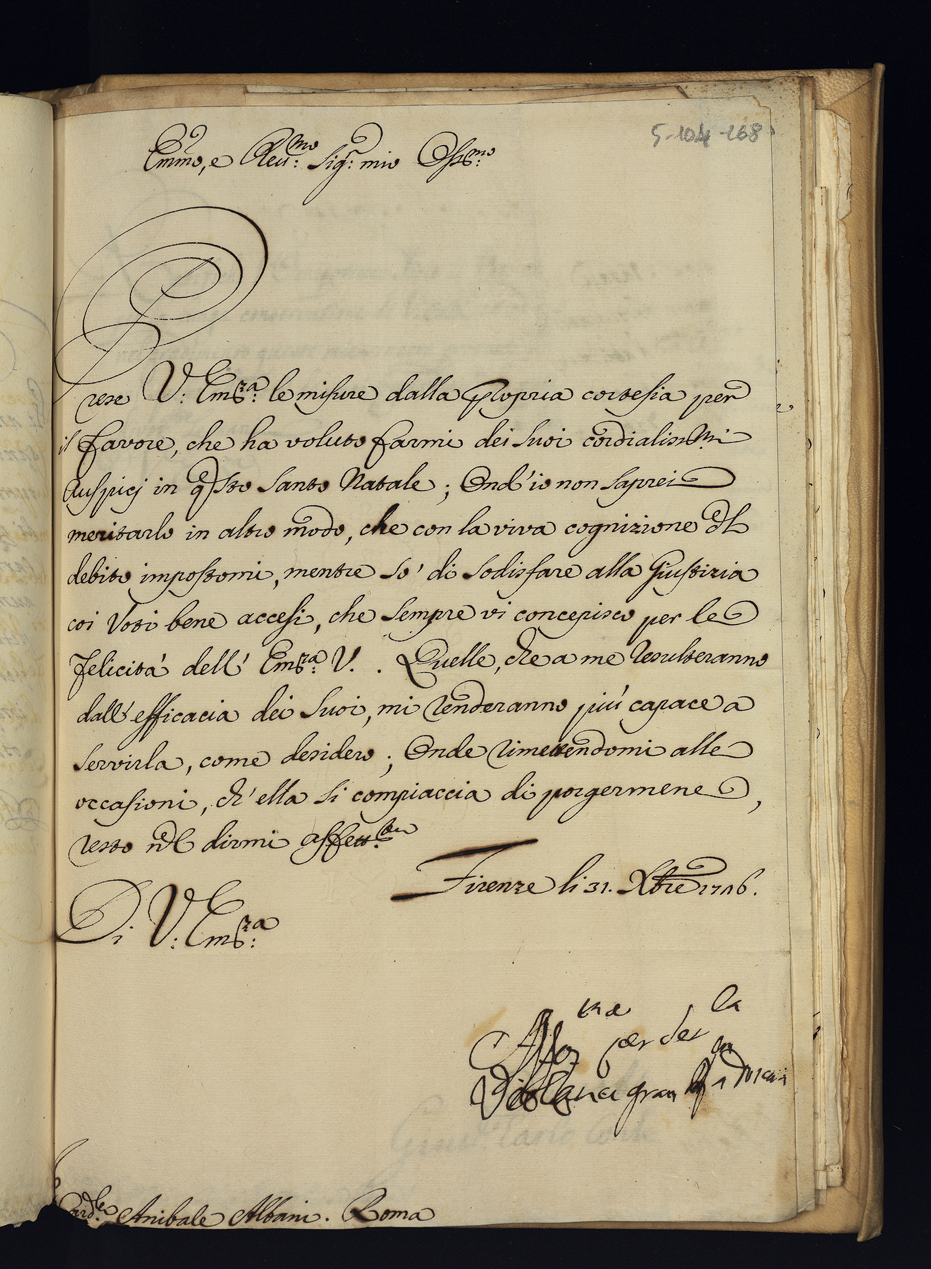 5-104-268
Emmo, e Reu:mo Sig: mio Oss:mo
Prese V: Em:za le misure dalla propria cortesia per
il favore, che ha voluto farmi dei suoi cordialissmi
Auspicj in qsto Santo Natale; Ond'io non saprei
meritarlo in altro modo, che con la viva cognizione dl
debito impostomi, mentre so' di sodisfare alla Giustizia
coi Voti bene accesi, che sempre vi concepisco per le
felicità dell' Em:za V. . Quelle, che a me resulteranno
dall'efficacia dei suoi, mi renderanno più capace a
servirla, come desidero; Onde rimettendomi alle
occasioni, ch'ella si compiaccia di porgermene,
resto nel dirmi affett:te
Firenze li 31. Xbre 1716.
Di V: Em:za
Aff:ma per
Violante gran
Card:le Anibale Albani. Roma